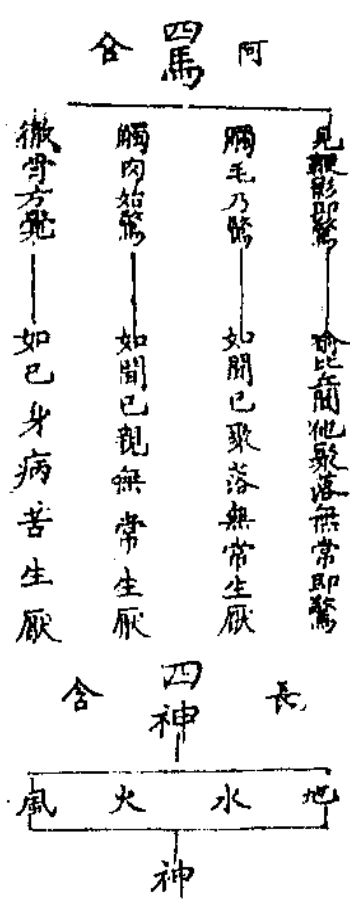 四馬
阿含
見鞭影即驚
喻比丘聞他聚落無常即驚
觸毛乃驚
如聞己聚落無常生厭
觸肉始驚
如聞己親無常生厭
徹骨方覺
如己身病苦生厭
四神
長含
地水火風
神